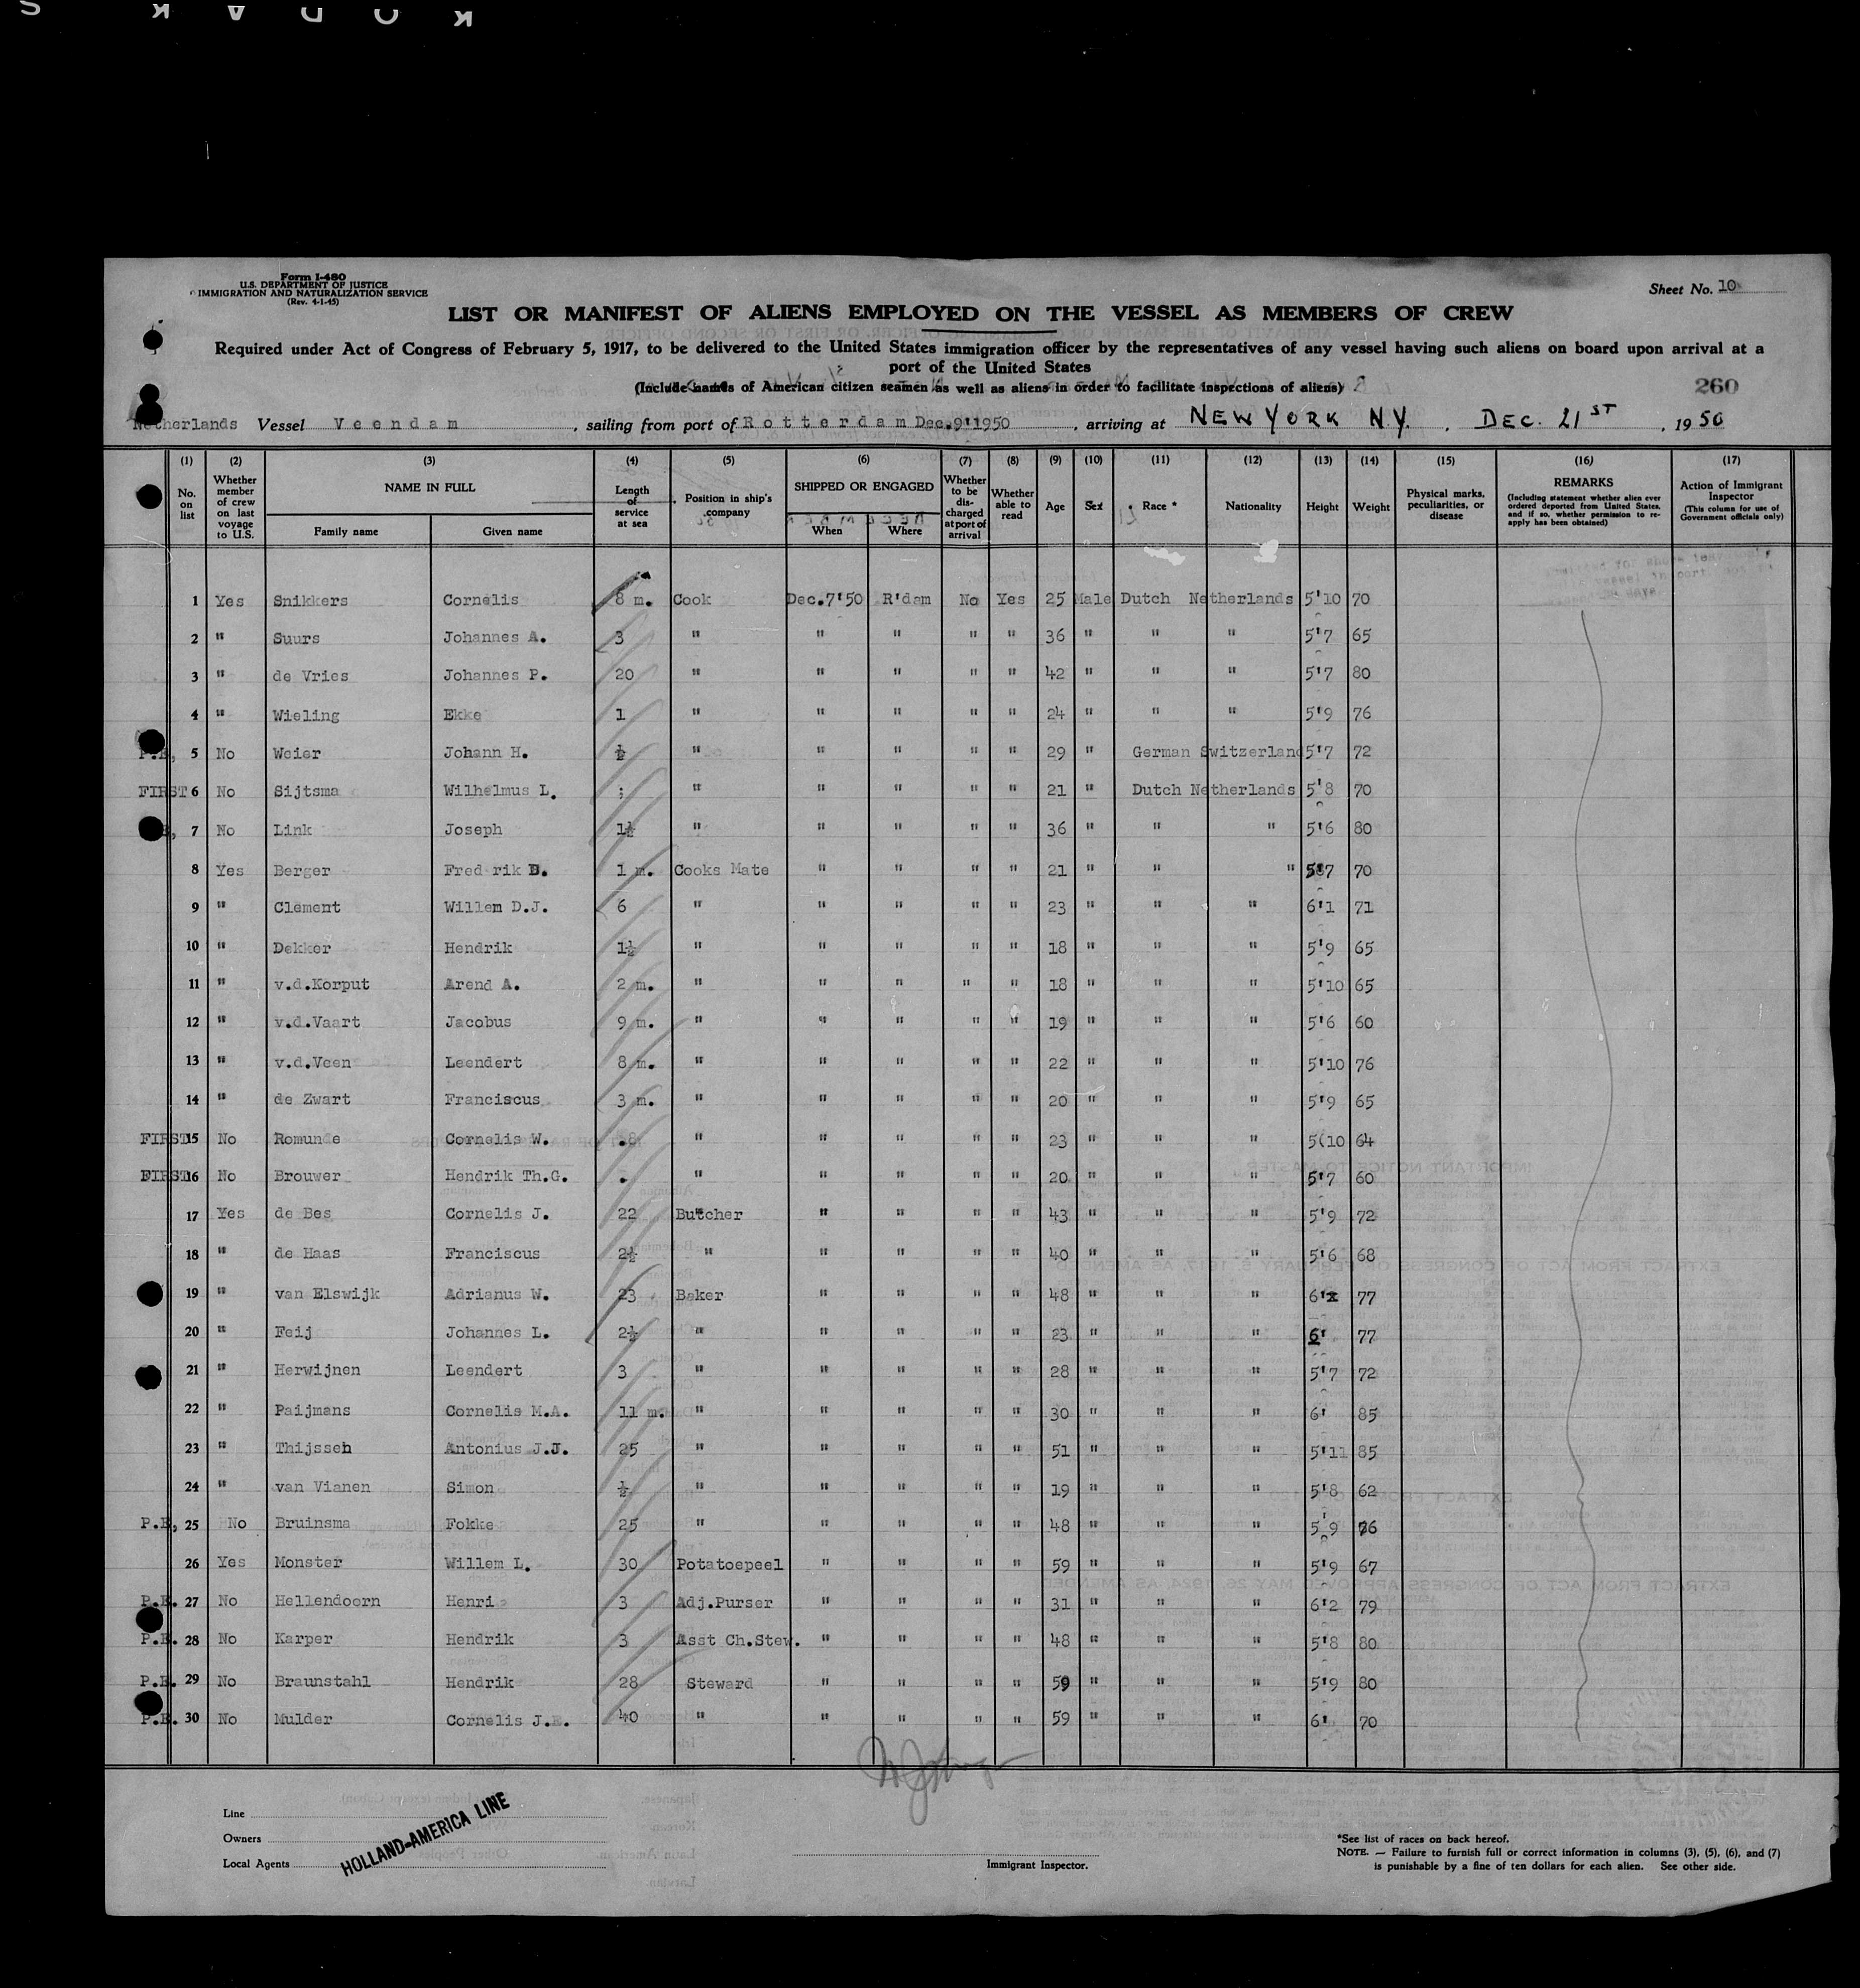 KODAK S
Form I-480
U.S. DEPARTMENT OF JUSTICE
IMMIGRATION AND NATURALIZATION SERVICE
(Rev. 4-1-45)
Sheet No. 10
LIST OR MANIFEST OF ALIENS EMPLOYED ON THE VESSEL AS MEMBERS OF CREW
Required under Act of Congress of February 5, 1917, to be delivered to the United States immigration officer by the representatives of any vessel having such aliens on board upon arrival at a
port of the United States
(Include names of American citizen seamen as well as aliens in order to facilitate inspections of aliens)
260
Netherlands Vessel Veendam, sailing from port of Rotterdam Dec.9'1950, arriving at NEW YORK N.Y. DEC. 21ST, 1950
(1) (2) (3) (4) (5) (6) (7) (8) (9) (10) (11) (12) (13) (14) (15) (16) (17)
No. on list
Whether member of crew on last voyage to U.S.
NAME IN FULL
Family name Given name
Length of service at sea
Position in ship's company
SHIPPED OR ENGAGED
When Where
Whether to be discharged at port of arrival
Whether able to read
Age Sex Race * Nationality Height Weight
Physical marks, peculiarities, or disease
REMARKS
(Including statement whether alien ever ordered deported from United States, and if so, whether permission to re-apply has been obtained)
Action of Immigrant Inspector
(This column for use of Government officials only)
1 Yes Snikkers Cornelis 8 m. Cook Dec.7'50 R'dam No Yes 25 Male Dutch Netherlands 5'10 70
2 " Suurs Johannes A. 3 " " " " " 36 " " " 5'7 65
3 " de Vries Johannes P. 20 " " " " " 42 " " " 5'7 80
4 " Wieling Ekke 1 " " " " " 24 " " " 5'9 76
P.E, 5 No Weier Johann H. ½ " " " " " 29 " German Switzerland 5'7 72
FIRST 6 No Sijtsma Wilhelmus L. " " " " " 21 " Dutch Netherlands 5'8 70
7 No Link Joseph 1½ " " " " " 36 " " " 5'6 80
8 Yes Berger Fred rik B. 1 m. Cooks Mate " " " " 21 " " " 5'7 70
9 " Clement Willem D.J. 6 " " " " " 23 " " " 6'1 71
10 " Dekker Hendrik 1½ " " " " " 18 " " " 5'9 65
11 " v.d.Korput Arend A. 2 m. " " " " " 18 " " " 5'10 65
12 " v.d.Vaart Jacobus 9 m. " " " " " 19 " " " 5'6 60
13 " v.d.Veen Leendert 8 m. " " " " " 22 " " " 5'10 76
14 " de Zwart Franciscus 3 m. " " " " " 20 " " " 5'9 65
FIRST 15 No Romunde Cornelis W. " " " " " 23 " " " 5(10 64
FIRST 16 No Brouwer Hendrik Th.G. " " " " " 20 " " " 5'7 60
17 Yes de Bes Cornelis J. 22 Butcher " " " " 43 " " " 5'9 72
18 " de Haas Franciscus 2½ " " " " " 40 " " " 5'6 68
19 " van Elswijk Adrianus W. 23 Baker " " " " 48 " " " 6' 77
20 " Feij Johannes L. 2½ " " " " " 23 " " " 6' 77
21 " Herwijnen Leendert 3 " " " " " 28 " " " 5'7 72
22 " Paijmans Cornelis M.A. 11 m. " " " " " 30 " " " 6' 85
23 " Thijssen Antonius J.J. 25 " " " " " 51 " " " 5'11 85
24 " van Vianen Simon ½ " " " " " 19 " " " 5'8 62
P.E, 25 No Bruinsma Fokke 25 " " " " " 48 " " " 5'9 76
26 Yes Monster Willem L. 30 Potatoepeel " " " " 59 " " " 5'9 67
P.E. 27 No Hellendoorn Henri 3 Adj.Purser " " " " 31 " " " 6'2 79
P.E. 28 No Karper Hendrik 3 Asst Ch.Stew. " " " " 48 " " " 5'8 80
P.E. 29 No Braunstahl Hendrik 28 Steward " " " " 59 " " " 5'9 80
P.E. 30 No Mulder Cornelis J.E. 40 " " " " " 59 " " " 6' 70
Line
Owners
Local Agents
HOLLAND-AMERICA LINE
Immigrant Inspector.
*See list of races on back hereof.
NOTE. — Failure to furnish full or correct information in columns (3), (5), (6), and (7)
is punishable by a fine of ten dollars for each alien. See other side.